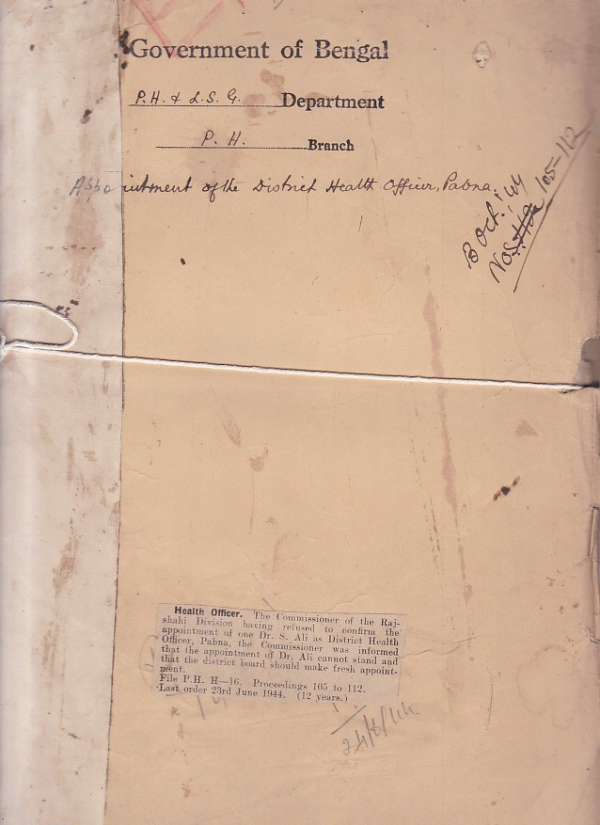 Government of Bengal
P.H. & L.S.G. Department
P. H. Branch
Appointment of the District Health Officer, Pabna.
B Oct. '44
Nos. 105-112
Health Officer. The Commissioner of the Raj-
shahi Division having refused to confirm the
appointment of one Dr. S. Ali as District Health
Officer, Pabna, the Commissioner was informed
that the appointment of Dr. Ali cannot stand and
that the district board should make fresh appoint-
ment.
File P.H. H—16. Proceedings 105 to 112.
Last order 23rd June 1944. (12 years.)